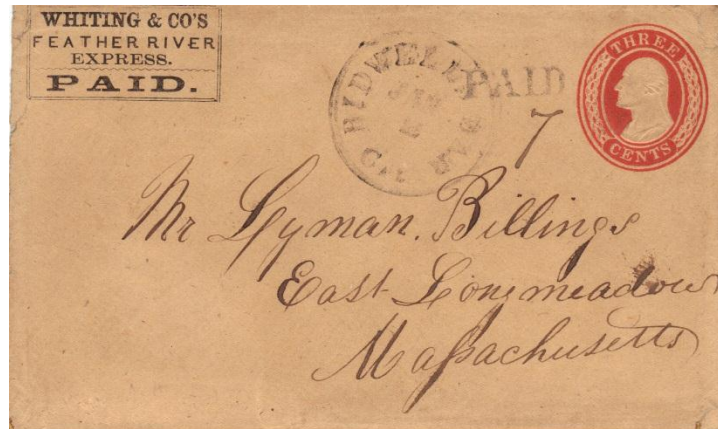 WHITING & CO'S
FEATHER RIVER
EXPRESS.
PAID.
BIDWELLS BAR
JAN
Cal
PAID
7
THREE
CENTS
Mr Lyman. Billings
East Longmeadow
Massachusetts